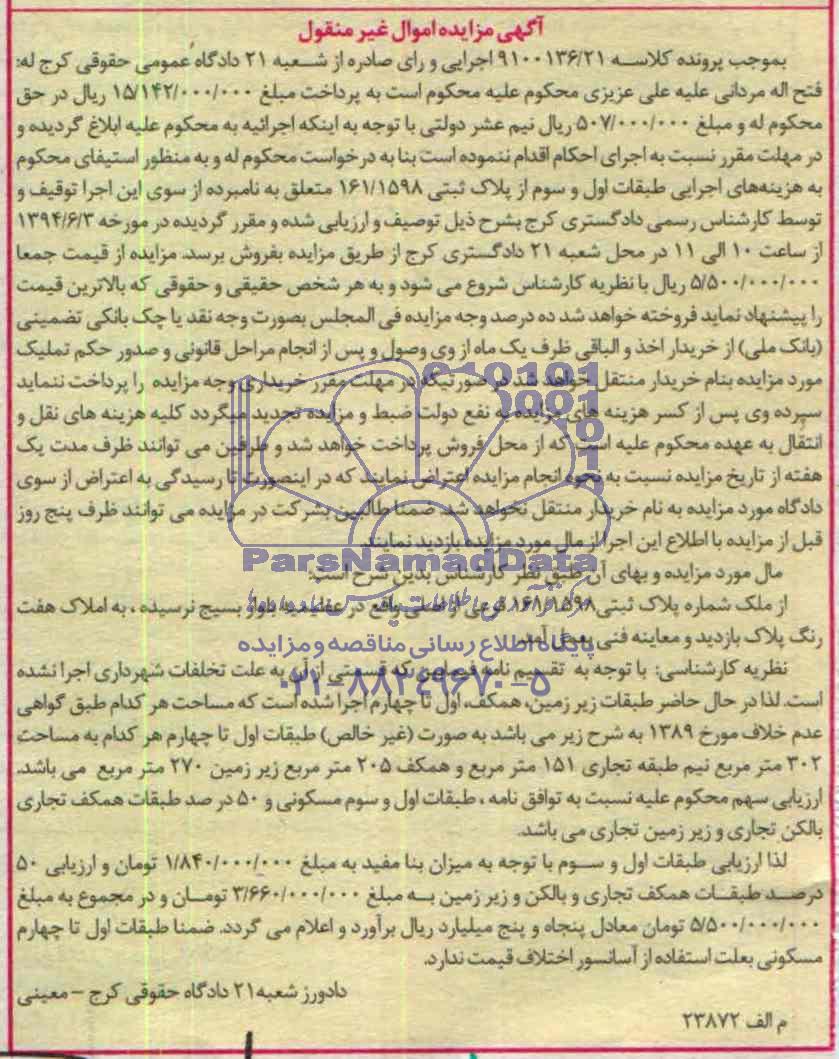 آگهی مزایده اموال غیر منقول
بموجب پرونده کلاسه ۹۱۰۰۱۳۶/۲۱ اجرایی و رای صادره از شعبه ۲۱ دادگاه عمومی حقوقی کرج له:
فتح اله مردانی علیه علی عزیزی محکوم علیه محکوم است به پرداخت مبلغ ۱۵/۱۴۲/۰۰۰/۰۰۰ ریال در حق
محکوم له و مبلغ ۵۰۷/۰۰۰/۰۰۰ ریال نیم عشر دولتی با توجه به اینکه اجرائیه به محکوم علیه ابلاغ گردیده و
در مهلت مقرر نسبت به اجرای احکام اقدام ننموده است بنا به درخواست محکوم له و به منظور استیفای محکوم
به هزینه‌های اجرایی طبقات اول و سوم از پلاک ثبتی ۱۶۱/۱۵۹۸ متعلق به نامبرده از سوی این اجرا توقیف و
توسط کارشناس رسمی دادگستری کرج بشرح ذیل توصیف و ارزیابی شده و مقرر گردیده در مورخه ۱۳۹۴/۶/۳
از ساعت ۱۰ الی ۱۱ در محل شعبه ۲۱ دادگستری کرج از طریق مزایده بفروش برسد. مزایده از قیمت جمعا
۵/۵۰۰/۰۰۰/۰۰۰ ریال با نظریه کارشناس شروع می شود و به هر شخص حقیقی و حقوقی که بالاترین قیمت
را پیشنهاد نماید فروخته خواهد شد ده درصد وجه مزایده فی المجلس بصورت وجه نقد یا چک بانکی تضمینی
(بانک ملی) از خریدار اخذ و الباقی ظرف یک ماه از وی وصول و پس از انجام مراحل قانونی و صدور حکم تملیک
مورد مزایده بنام خریدار منتقل خواهد شد در صورتیکه در مهلت مقرر خریداری وجه مزایده را پرداخت ننماید
سپرده وی پس از کسر هزینه های مزایده به نفع دولت ضبط و مزایده تجدید میگردد کلیه هزینه های نقل و
انتقال به عهده محکوم علیه است که از محل فروش پرداخت خواهد شد و طرفین می توانند ظرف مدت یک
هفته از تاریخ مزایده نسبت به نحوه انجام مزایده اعتراض نمایند که در اینصورت تا رسیدگی به اعتراض از سوی
دادگاه مورد مزایده به نام خریدار منتقل نخواهد شد. ضمنا طالبین بشرکت در مزایده می توانند ظرف پنج روز
قبل از مزایده با اطلاع این اجرا از مال مورد مزایده بازدید نمایند.
ParsNamadData
مال مورد مزایده و بهای آن طبق نظر کارشناس بدین شرح است:
از ملک شماره پلاک ثبتی ۱۶۱/۱۵۹۸ فرعی از اصلی واقع در بلوار بسیج نرسیده ، به املاک هفت
رنگ پلاک بازدید و معاینه فنی بعمل آمد.
پایگاه اطلاع رسانی مناقصه و مزایده
نظریه کارشناسی: با توجه به تقسیم نامه که قسمتی از آن به علت تخلفات شهرداری اجرا نشده
۰۲۱-۸۸۳۴۹۶۷۰-۵
است. لذا در حال حاضر طبقات زیر زمین، همکف، اول تا چهارم اجرا شده است که مساحت هر کدام طبق گواهی
عدم خلاف مورخ ۱۳۸۹ به شرح زیر می باشد به صورت (غیر خالص) طبقات اول تا چهارم هر کدام به مساحت
۳۰۲ متر مربع نیم طبقه تجاری ۱۵۱ متر مربع و همکف ۲۰۵ متر مربع زیر زمین ۲۷۰ متر مربع می باشد.
ارزیابی سهم محکوم علیه نسبت به توافق نامه ، طبقات اول و سوم مسکونی و ۵۰ در صد طبقات همکف تجاری
بالکن تجاری و زیر زمین تجاری می باشد.
لذا ارزیابی طبقات اول و سوم با توجه به میزان بنا مفید به مبلغ ۱/۸۴۰/۰۰۰/۰۰۰ تومان و ارزیابی ۵۰
درصد طبقات همکف تجاری و بالکن و زیر زمین به مبلغ ۳/۶۶۰/۰۰۰/۰۰۰ تومان و در مجموع به مبلغ
۵/۵۰۰/۰۰۰/۰۰۰ تومان معادل پنجاه و پنج میلیارد ریال برآورد و اعلام می گردد. ضمنا طبقات اول تا چهارم
مسکونی بعلت استفاده از آسانسور اختلاف قیمت ندارد.
دادورز شعبه ۲۱ دادگاه حقوقی کرج – معینی
م الف ۲۳۸۷۲